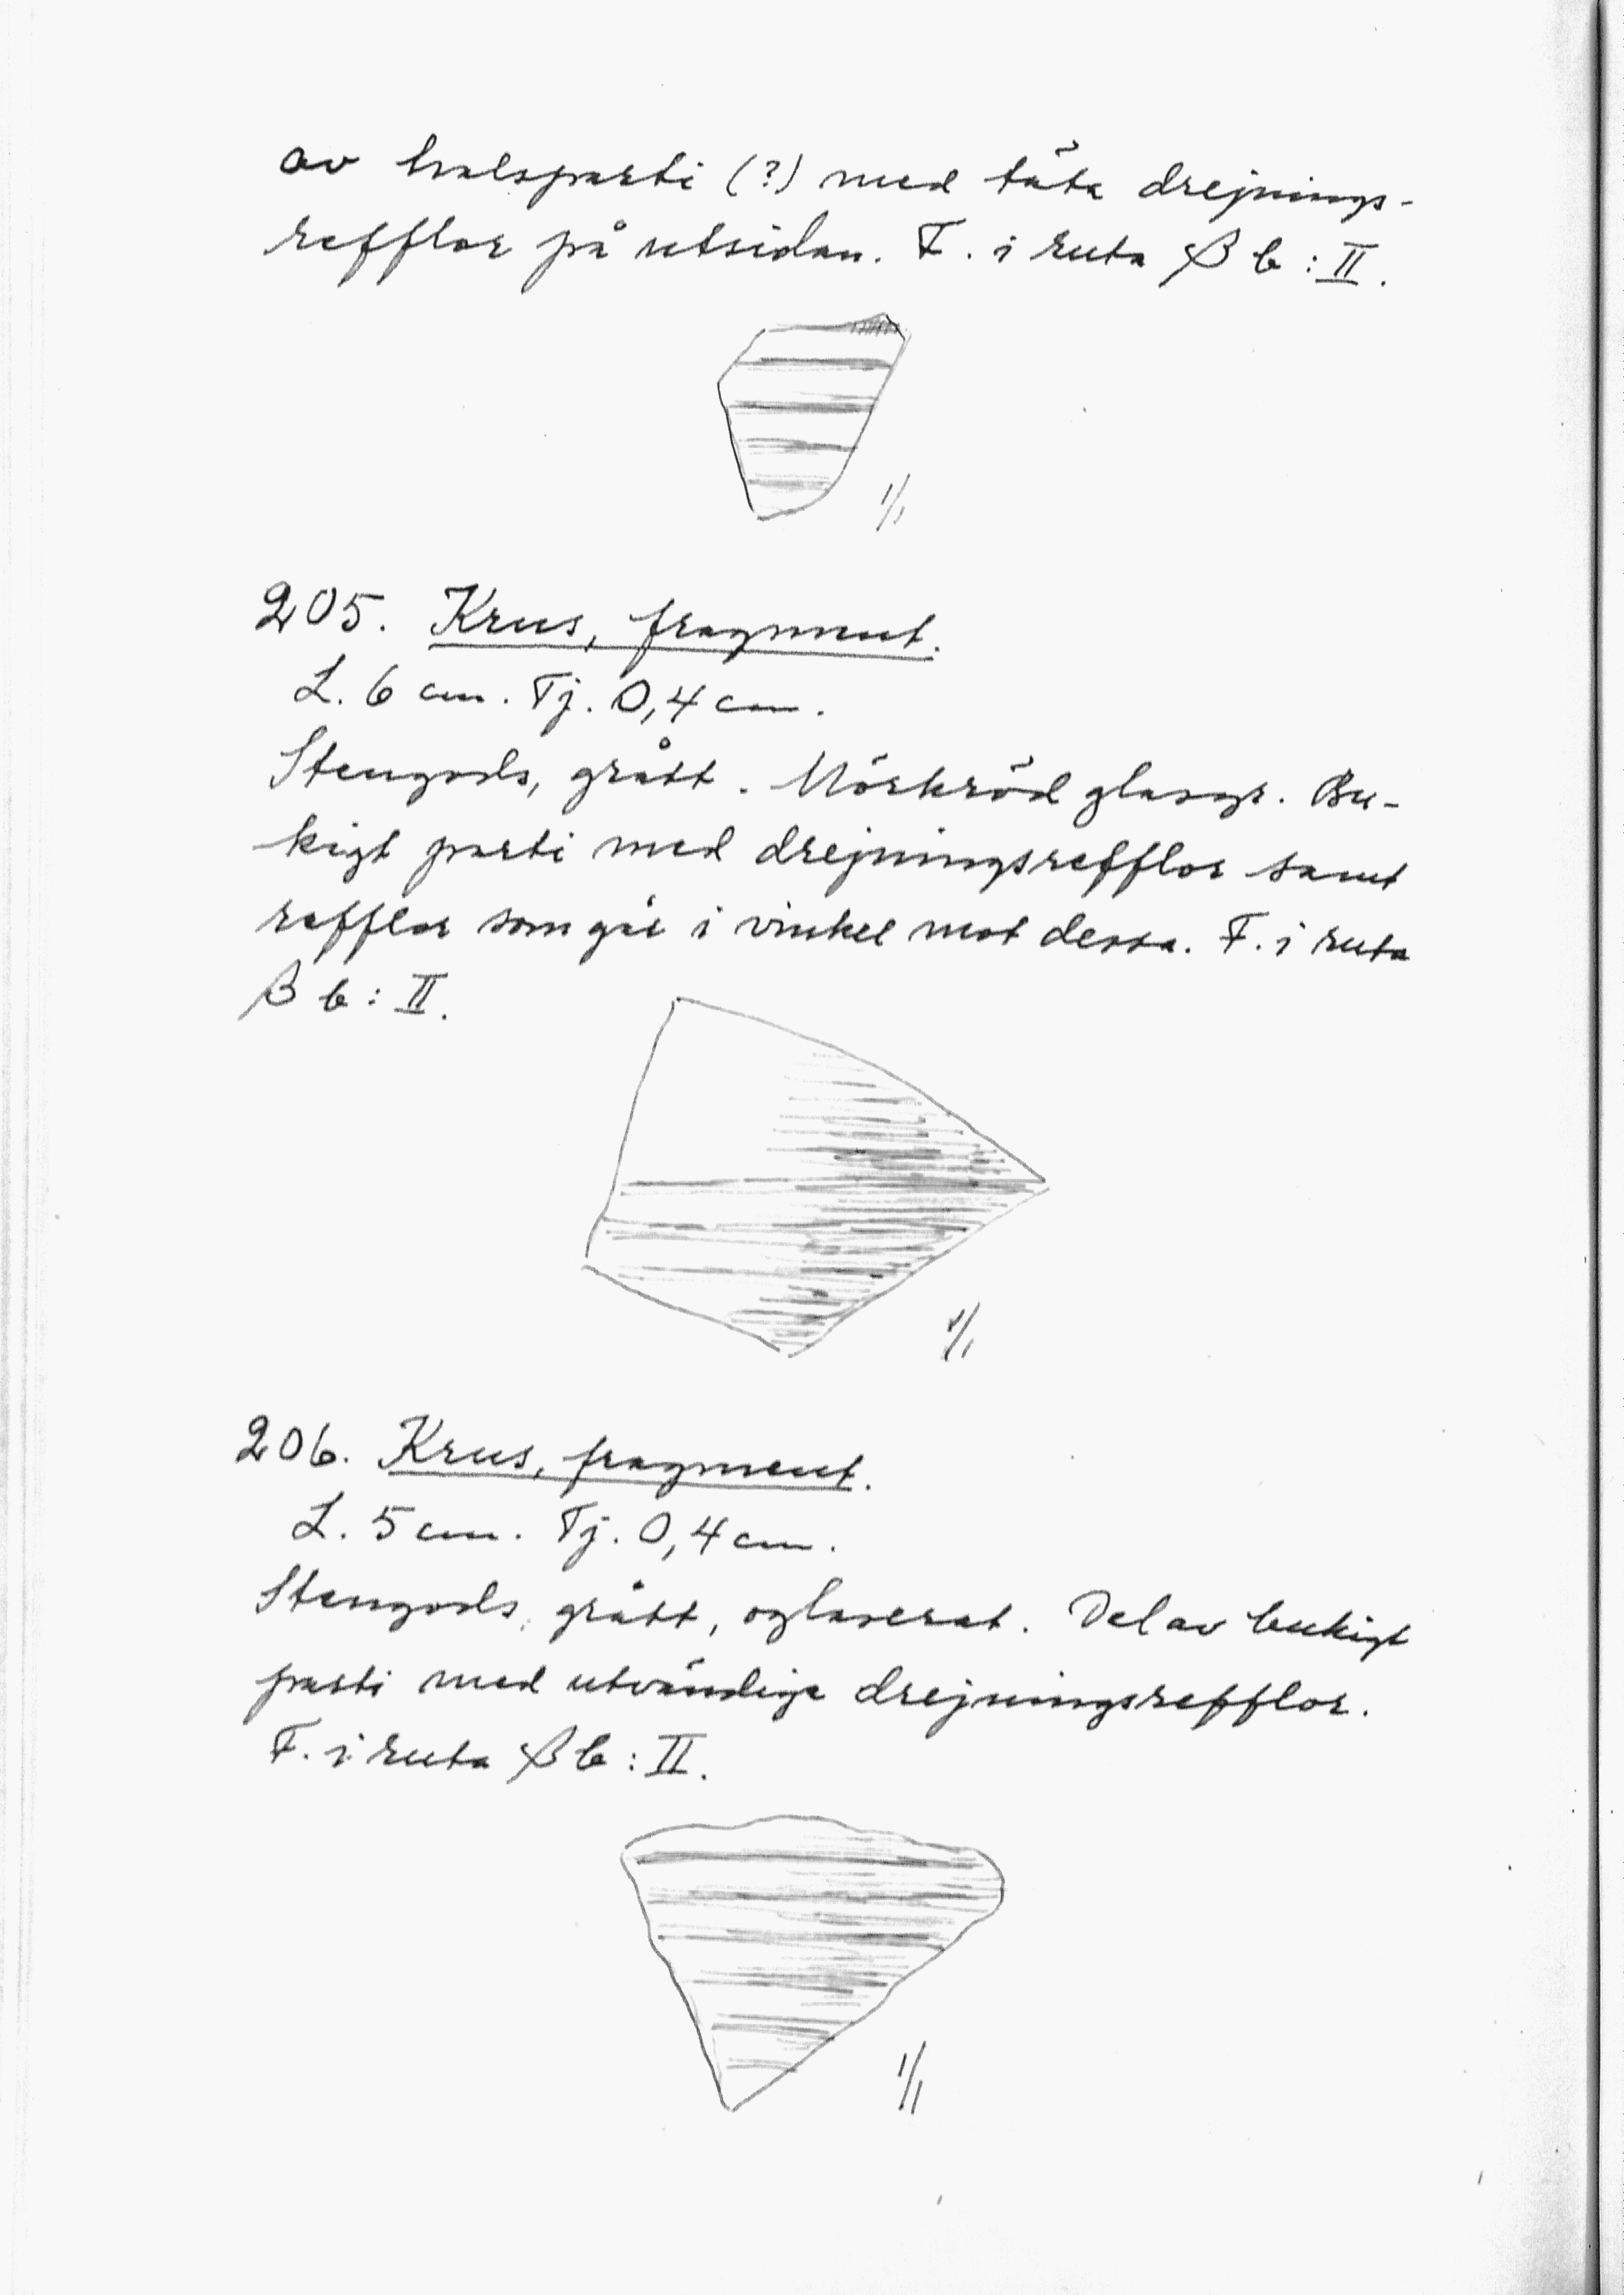 av halsparti (?) med täta drejnings-
refflor på utsidan. F. i ruta β b : II.
1/1
205. Krus, fragment.
L. 6 cm. Tj. 0,4 cm.
Stengods, grått. Mörkröd glasyr. Bu-
kigt parti med drejningsrefflor samt
refflor som går i vinkel mot dessa. F. i ruta
β b : II.
1/1
206. Krus, fragment.
L. 5 cm. Tj. 0,4 cm.
Stengods, grått, oglaserat. Del av bukigt
parti med utvändiga drejningsrefflor.
F. i ruta β b : II.
1/1